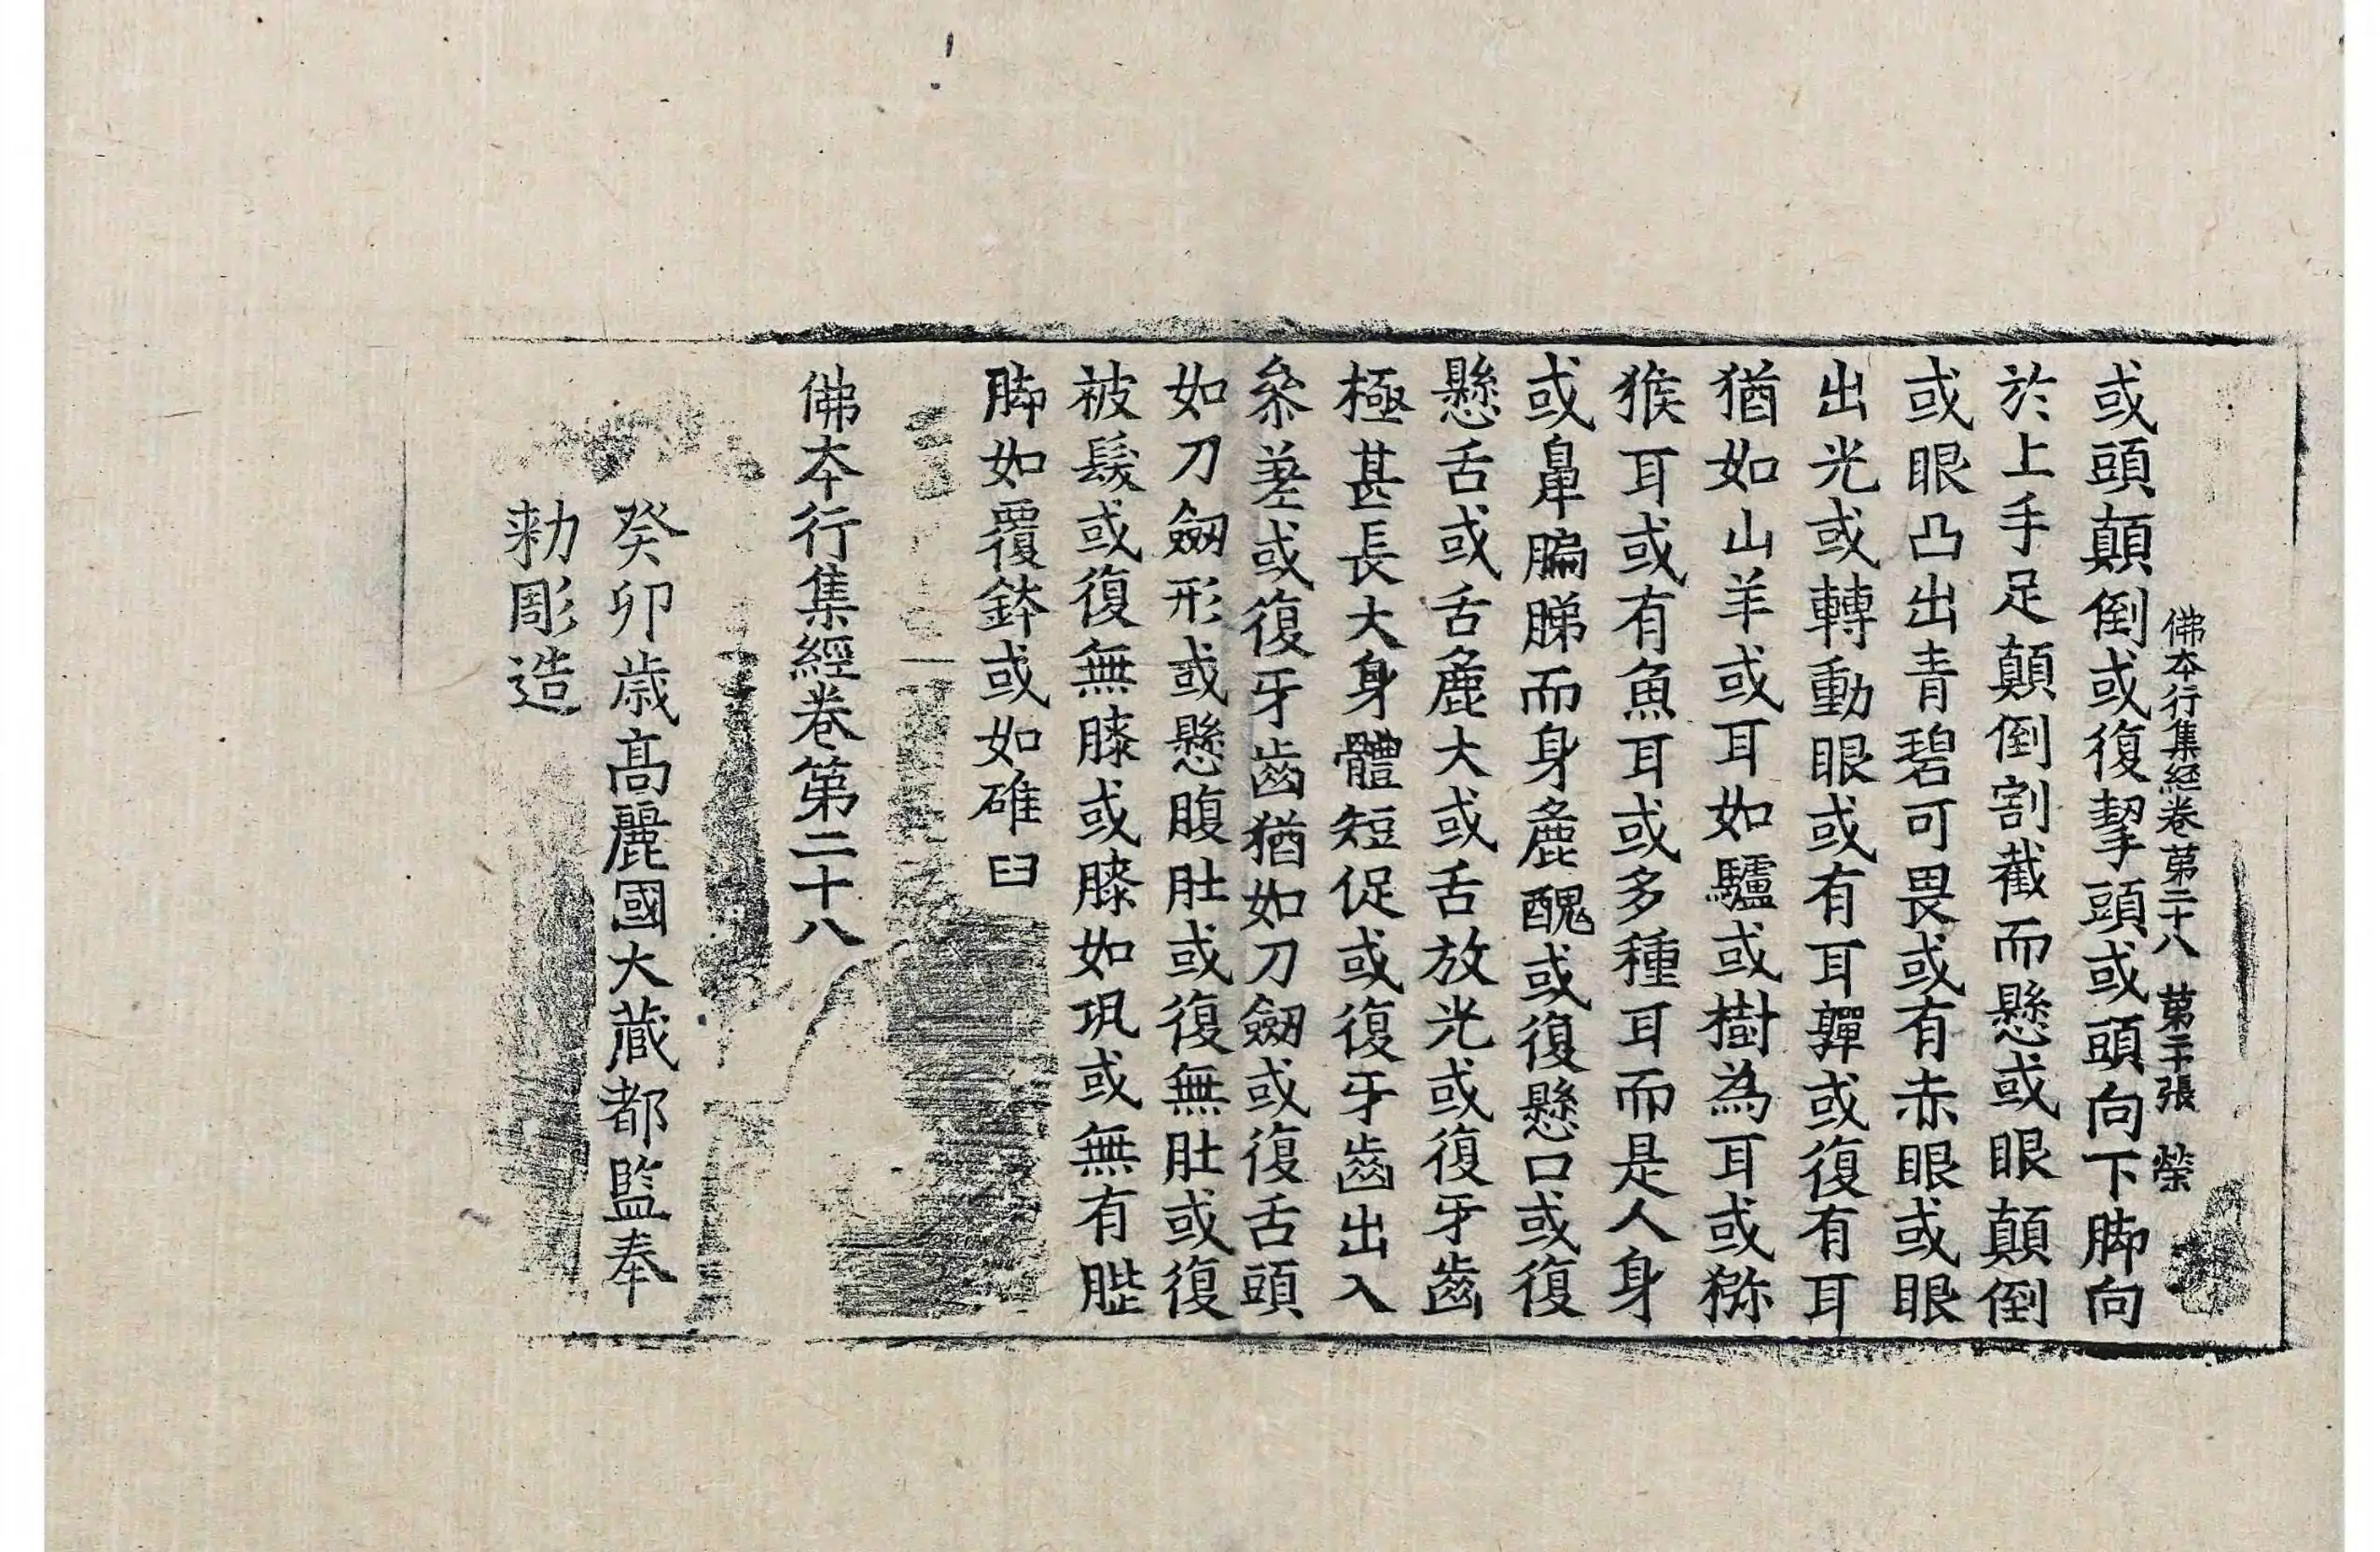 佛夲行集經卷苐二十八 苐二十張 榮
或頭顛倒或復挈頭或頭向下脚向
於上手足顛倒割截而懸或眼顛倒
或眼凸出青碧可畏或有赤眼或眼
出光或轉動眼或有耳嚲或復有耳
猶如山羊或耳如驢或樹為耳或猕
猴耳或有魚耳或多種耳而是人身
或鼻騗䏲而身麁醜或復懸口或復
懸舌或舌麁大或舌放光或復牙齒
極甚長大身體短促或復牙齒出入
叅差或復牙齒猶如刀劒或復舌頭
如刀劒形或懸腹肚或復無肚或復
被髮或復無膝或膝如瓨或無有䏶
脚如覆鉢或如碓臼
佛夲行集經卷第二十八
癸卯歲高麗國大藏都監奉
勅彫造